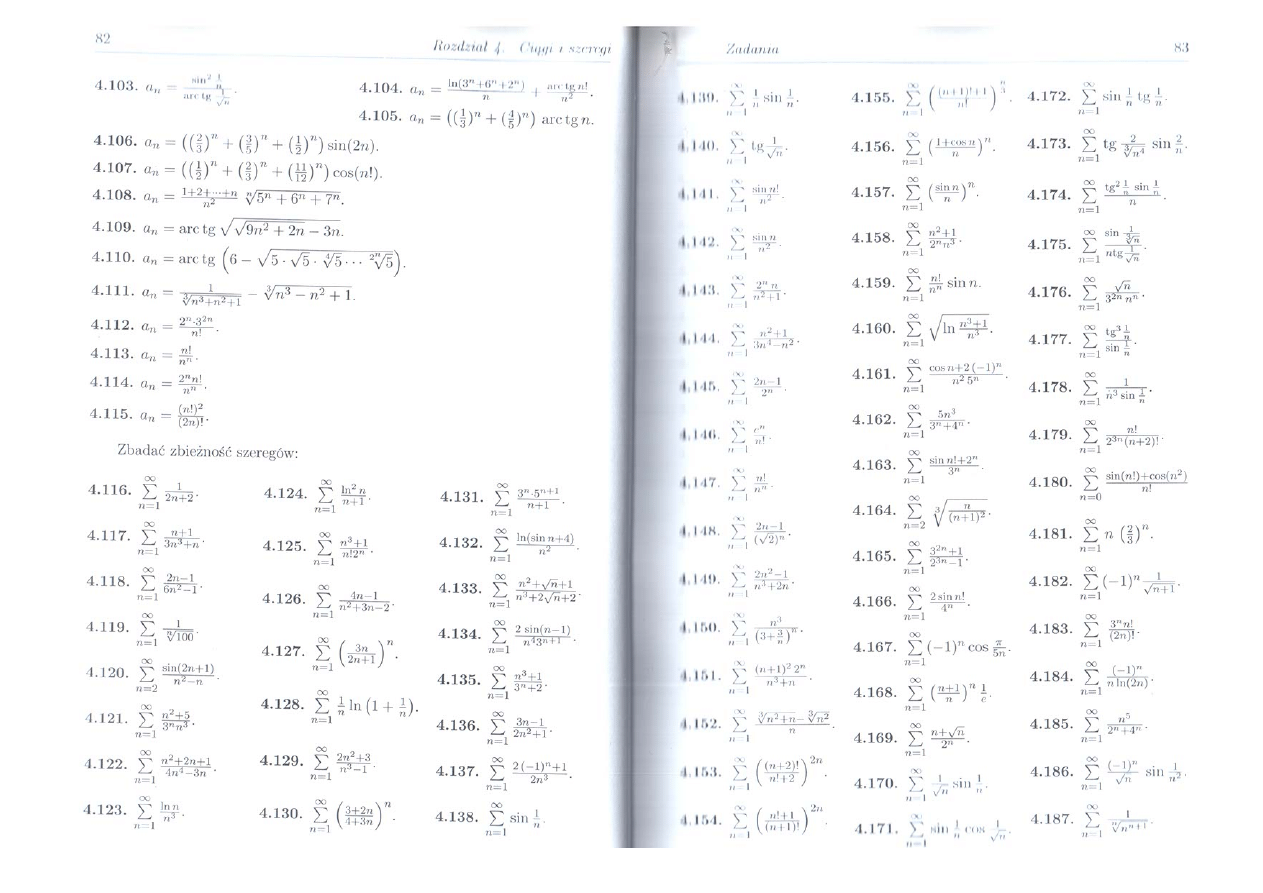 82
Rozdział 4. Ciągi i szeregi
4.103. a_n = \frac{\sin^2 \frac{1}{n}}{\text{arc tg} \frac{1}{\sqrt{n}}}.
4.104. a_n = \frac{\ln(3^n+6^n+2^n)}{n} + \frac{\text{arc tg} n!}{n^2}.
4.105. a_n = ((\frac{1}{3})^n + (\frac{4}{5})^n) arc tg n.
4.106. a_n = ((\frac{2}{3})^n + (\frac{3}{5})^n + (\frac{1}{2})^n) sin(2n).
4.107. a_n = ((\frac{1}{2})^n + (\frac{2}{3})^n + (\frac{11}{12})^n) cos(n!).
4.108. a_n = \frac{1+2+\cdots+n}{n^2} \sqrt[n]{5^n + 6^n + 7^n}.
4.109. a_n = arc tg \sqrt{\sqrt{9n^2 + 2n} - 3n}.
4.110. a_n = arc tg (6 - \sqrt{5} · \sqrt{5} · \sqrt[4]{5} ··· \sqrt[2^n]{5}).
4.111. a_n = \frac{1}{\sqrt[3]{n^3+n^2+1}} - \sqrt[3]{n^3 - n^2 + 1}.
4.112. a_n = \frac{2^n·3^{2n}}{n!}.
4.113. a_n = \frac{n!}{n^n}.
4.114. a_n = \frac{2^n n!}{n^n}.
4.115. a_n = \frac{(n!)^2}{(2n)!}.
Zbadać zbieżność szeregów:
4.116. \sum_{n=1}^∞ \frac{1}{2n+2}.
4.117. \sum_{n=1}^∞ \frac{n+1}{3n^3+n}.
4.118. \sum_{n=1}^∞ \frac{2n-1}{6n^2-1}.
4.119. \sum_{n=1}^∞ \frac{1}{\sqrt[n]{100}}.
4.120. \sum_{n=2}^∞ \frac{\sin(2n+1)}{n^2-n}.
4.121. \sum_{n=1}^∞ \frac{n^2+5}{3^n n^3}.
4.122. \sum_{n=1}^∞ \frac{n^2+2n+1}{4n^4-3n}.
4.123. \sum_{n=1}^∞ \frac{\ln n}{n^3}.
4.124. \sum_{n=1}^∞ \frac{\ln^2 n}{n+1}.
4.125. \sum_{n=1}^∞ \frac{n^3+1}{n!2^n}.
4.126. \sum_{n=1}^∞ \frac{4n-1}{n^2+3n-2}.
4.127. \sum_{n=1}^∞ (\frac{3n}{2n+1})^n.
4.128. \sum_{n=1}^∞ \frac{1}{n} ln (1 + \frac{1}{n}).
4.129. \sum_{n=1}^∞ \frac{2n^2+3}{n^3-1}.
4.130. \sum_{n=1}^∞ (\frac{3+2n}{4+3n})^n.
4.131. \sum_{n=1}^∞ \frac{3^n·5^{n+1}}{n+1}.
4.132. \sum_{n=1}^∞ \frac{\ln(\sin n+4)}{n^2}.
4.133. \sum_{n=1}^∞ \frac{n^2+\sqrt{n}+1}{n^3+2\sqrt{n}+2}.
4.134. \sum_{n=1}^∞ \frac{2 \sin(n-1)}{n^4 3^{n+1}}.
4.135. \sum_{n=1}^∞ \frac{n^3+1}{3^n+2}.
4.136. \sum_{n=1}^∞ \frac{3n-1}{2n^2+1}.
4.137. \sum_{n=1}^∞ \frac{2(-1)^n+1}{2n^3}.
4.138. \sum_{n=1}^∞ sin \frac{1}{n}.
Zadania
83
4.139. \sum_{n=1}^∞ \frac{1}{n} sin \frac{1}{n}.
4.140. \sum_{n=1}^∞ tg \frac{1}{\sqrt{n}}.
4.141. \sum_{n=1}^∞ \frac{\sin n!}{n^2}.
4.142. \sum_{n=1}^∞ \frac{\sin n}{n^2}.
4.143. \sum_{n=1}^∞ \frac{2^n n}{n^2+1}.
4.144. \sum_{n=1}^∞ \frac{n^2+1}{3n^4-n^2}.
4.145. \sum_{n=1}^∞ \frac{2n-1}{2^n}.
4.146. \sum_{n=1}^∞ \frac{e^n}{n!}.
4.147. \sum_{n=1}^∞ \frac{n!}{n^n}.
4.148. \sum_{n=1}^∞ \frac{2n-1}{(\sqrt{2})^n}.
4.149. \sum_{n=1}^∞ \frac{2n^2-1}{n^3+2n}.
4.150. \sum_{n=1}^∞ \frac{n^3}{(3+\frac{3}{n})^n}.
4.151. \sum_{n=1}^∞ \frac{(n+1)^2 2^n}{n^3+n}.
4.152. \sum_{n=1}^∞ \frac{\sqrt[3]{n^2+n}-\sqrt[3]{n^2}}{n}.
4.153. \sum_{n=1}^∞ (\frac{(n+2)!}{n!+2})^{2n}.
4.154. \sum_{n=1}^∞ (\frac{n!+1}{(n+1)!})^{2n}.
4.155. \sum_{n=1}^∞ (\frac{(n+1)!+1}{n!})^{\frac{n}{3}}.
4.156. \sum_{n=1}^∞ (\frac{1+\cos n}{n})^n.
4.157. \sum_{n=1}^∞ (\frac{\sin n}{n})^n.
4.158. \sum_{n=1}^∞ \frac{n^2+1}{2^n n^3}.
4.159. \sum_{n=1}^∞ \frac{n!}{n^n} sin n.
4.160. \sum_{n=1}^∞ \sqrt{\ln \frac{n^3+1}{n^3}}.
4.161. \sum_{n=1}^∞ \frac{\cos n+2(-1)^n}{n^2 5^n}.
4.162. \sum_{n=1}^∞ \frac{5n^3}{3^n+4^n}.
4.163. \sum_{n=1}^∞ \frac{\sin n!+2^n}{3^n}.
4.164. \sum_{n=2}^∞ \sqrt[3]{\frac{n}{(n+1)^2}}.
4.165. \sum_{n=1}^∞ \frac{3^{2n}+1}{2^{3n}-1}.
4.166. \sum_{n=1}^∞ \frac{2 \sin n!}{4^n}.
4.167. \sum_{n=1}^∞ (-1)^n cos \frac{π}{5n}.
4.168. \sum_{n=1}^∞ (\frac{n+1}{n})^n \frac{1}{e}.
4.169. \sum_{n=1}^∞ \frac{n+\sqrt{n}}{2^n}.
4.170. \sum_{n=1}^∞ \frac{1}{\sqrt{n}} sin \frac{1}{n}.
4.171. \sum_{n=1}^∞ sin \frac{1}{n} cos \frac{1}{\sqrt{n}}.
4.172. \sum_{n=1}^∞ sin \frac{1}{n} tg \frac{1}{n}.
4.173. \sum_{n=1}^∞ tg \frac{2}{\sqrt[3]{n^4}} sin \frac{2}{n}.
4.174. \sum_{n=1}^∞ \frac{\text{tg}^2 \frac{1}{n} \sin \frac{1}{n}}{n}.
4.175. \sum_{n=1}^∞ \frac{\sin \frac{1}{\sqrt[3]{n}}}{n \text{tg} \frac{1}{\sqrt{n}}}.
4.176. \sum_{n=1}^∞ \frac{\sqrt{n}}{3^{2n} n^n}.
4.177. \sum_{n=1}^∞ \frac{\text{tg}^3 \frac{1}{n}}{\sin \frac{1}{n}}.
4.178. \sum_{n=1}^∞ \frac{1}{n^3 \sin \frac{1}{n}}.
4.179. \sum_{n=1}^∞ \frac{n!}{2^{3n}(n+2)!}.
4.180. \sum_{n=0}^∞ \frac{\sin(n!)+\cos(n^2)}{n!}.
4.181. \sum_{n=1}^∞ n (\frac{2}{3})^n.
4.182. \sum_{n=1}^∞ (-1)^n \frac{1}{\sqrt{n+1}}.
4.183. \sum_{n=1}^∞ \frac{3^n n!}{(2n)!}.
4.184. \sum_{n=1}^∞ \frac{(-1)^n}{n \ln(2n)}.
4.185. \sum_{n=1}^∞ \frac{n^5}{2^n+4^n}.
4.186. \sum_{n=1}^∞ \frac{(-1)^n}{\sqrt{n}} sin \frac{1}{n^2}.
4.187. \sum_{n=1}^∞ \frac{1}{\sqrt[n]{n^{n+1}}}.